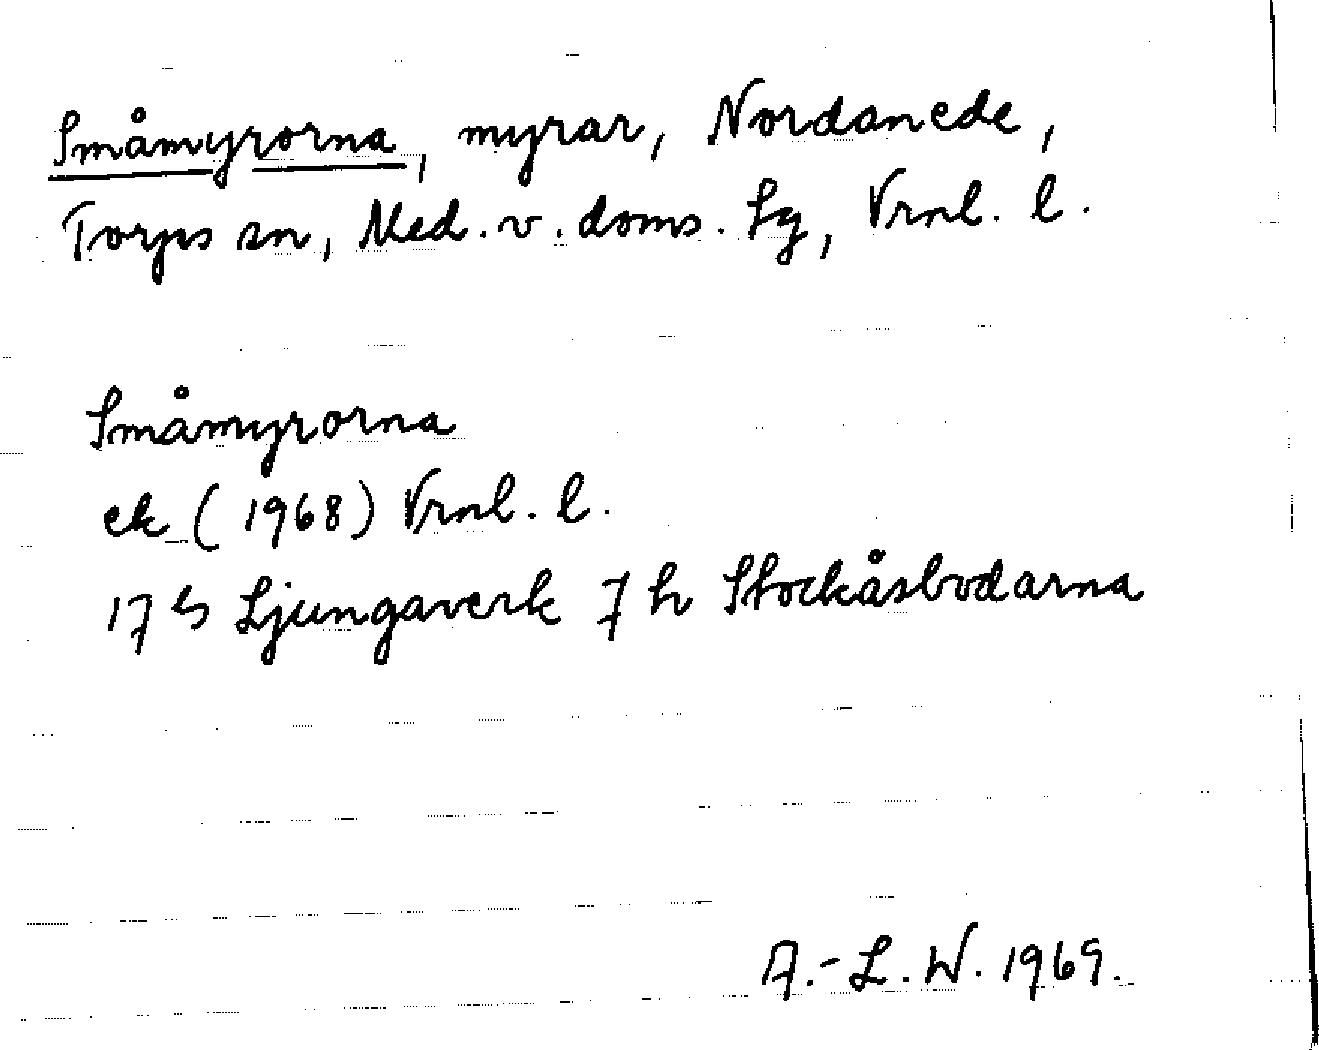 Småmyrorna, myrar, Nordanede,
Torps sn, Med. v. doms. sg, Vrnl. l.
Småmyrorna
ek (1968) Vrnl. l.
17G Ljungaverk 7 h Stockåsbodarna
A.-L. W. 1969.